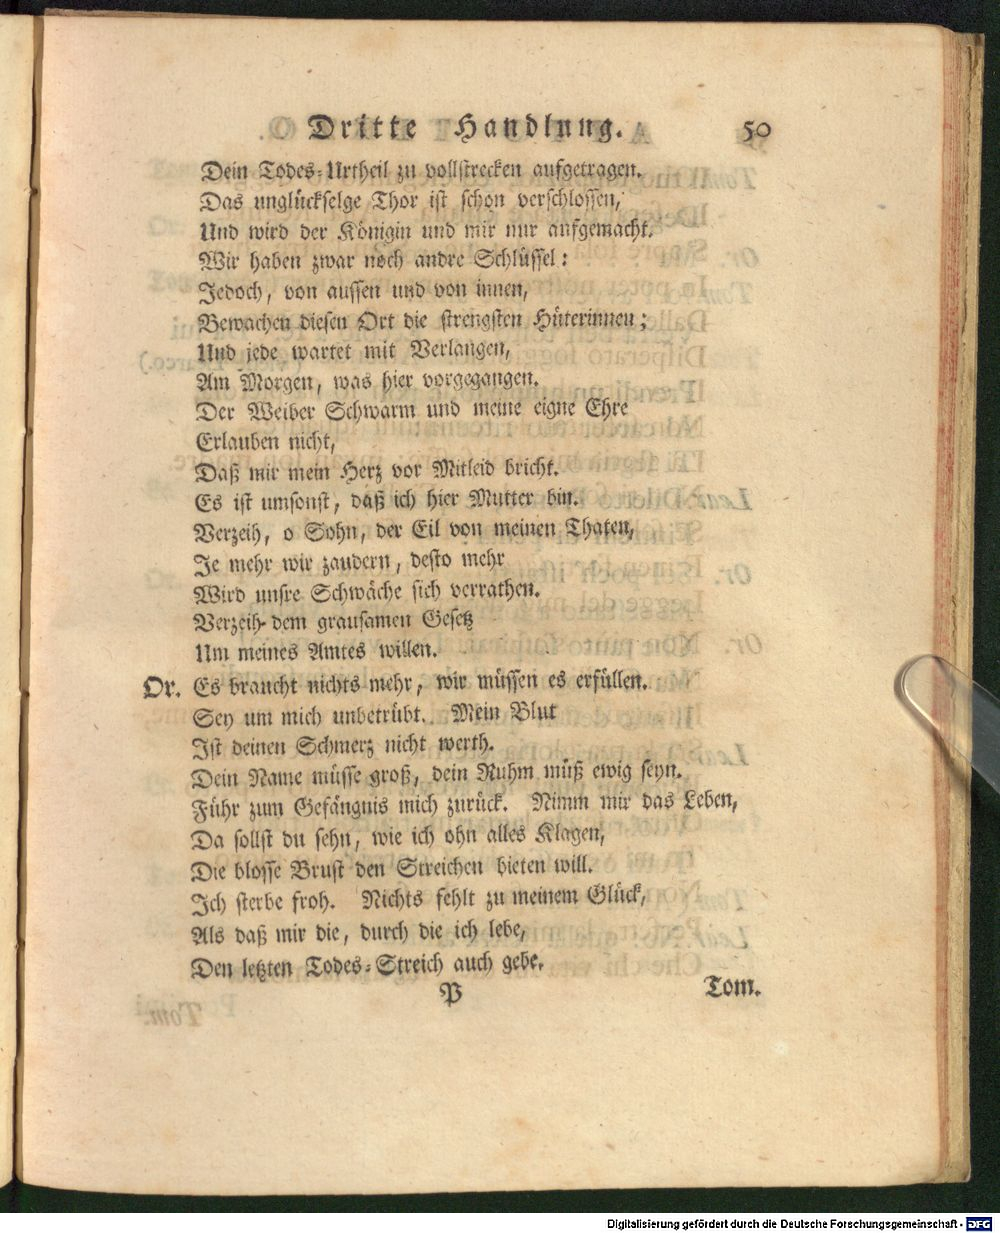 Dritte Handlung. 50
Dein Todes-Urtheil zu vollstrecken aufgetragen.
Das unglückselge Thor ist schon verschlossen,
Und wird der Königin und mir nur aufgemacht.
Wir haben zwar noch andre Schlüssel:
Jedoch, von aussen und von innen,
Bewachen diesen Ort die strengsten Hüterinnen;
Und jede wartet mit Verlangen,
Am Morgen, was hier vorgegangen.
Der Weiber Schwarm und meine eigne Ehre
Erlauben nicht,
Daß mir mein Herz vor Mitleid bricht.
Es ist umsonst, daß ich hier Mutter bin.
Verzeih, o Sohn, der Eil von meinen Thaten,
Je mehr wir zaudern, desto mehr
Wird unsre Schwäche sich verrathen.
Verzeih dem grausamen Gesetz
Um meines Amtes willen.
Or. Es braucht nichts mehr, wir müssen es erfüllen.
Sey um mich unbetrübt. Mein Blut
Ist deinen Schmerz nicht werth.
Dein Name müsse groß, dein Ruhm müß ewig seyn.
Führ zum Gefängnis mich zurück. Nimm mir das Leben,
Da sollst du sehn, wie ich ohn alles Klagen,
Die blosse Brust den Streichen bieten will.
Ich sterbe froh. Nichts fehlt zu meinem Glück,
Als daß mir die, durch die ich lebe,
Den letzten Todes-Streich auch gebe.
P Tom.
Digitalisierung gefördert durch die Deutsche Forschungsgemeinschaft - DFG